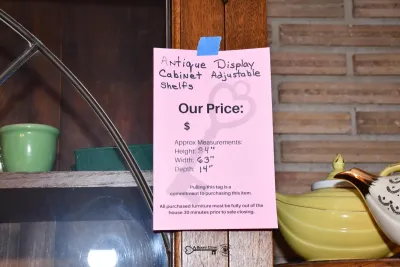 Antique Display
Cabinet Adjustable
Shelfs
Our Price:
$
Approx Measurements:
Height: 84"
Width: 63"
Depth: 14"
Pulling this tag is a
commitment to purchasing this item.
All purchased furniture must be fully out of the
house 30 minutes prior to sale closing.